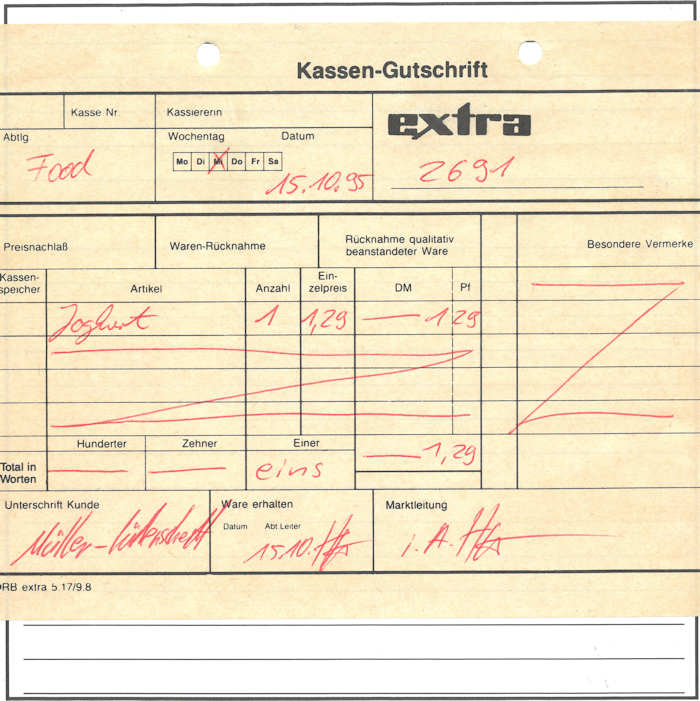 Kassen-Gutschrift
Kasse Nr
Kassiererin
extra
Abtlg
Wochentag
Datum
Food
Mo Di Mi Do Fr Sa
15.10.95
2691
Preisnachlaß
Waren-Rücknahme
Rücknahme qualitativ
beanstandeter Ware
Besondere Vermerke
Kassen-
speicher
Artikel
Anzahl
Ein-
zelpreis
DM
Pf
Joghurt 1 1,29 — 1 29
Hunderter
Zehner
Einer
— 1,29
Total in
Worten
— — eins
Unterschrift Kunde
Ware erhalten
Marktleitung
Datum
Abt Leiter
Müller-Lüdenscheidt
15.10.
i. A.
ORB extra 5.17/9.8